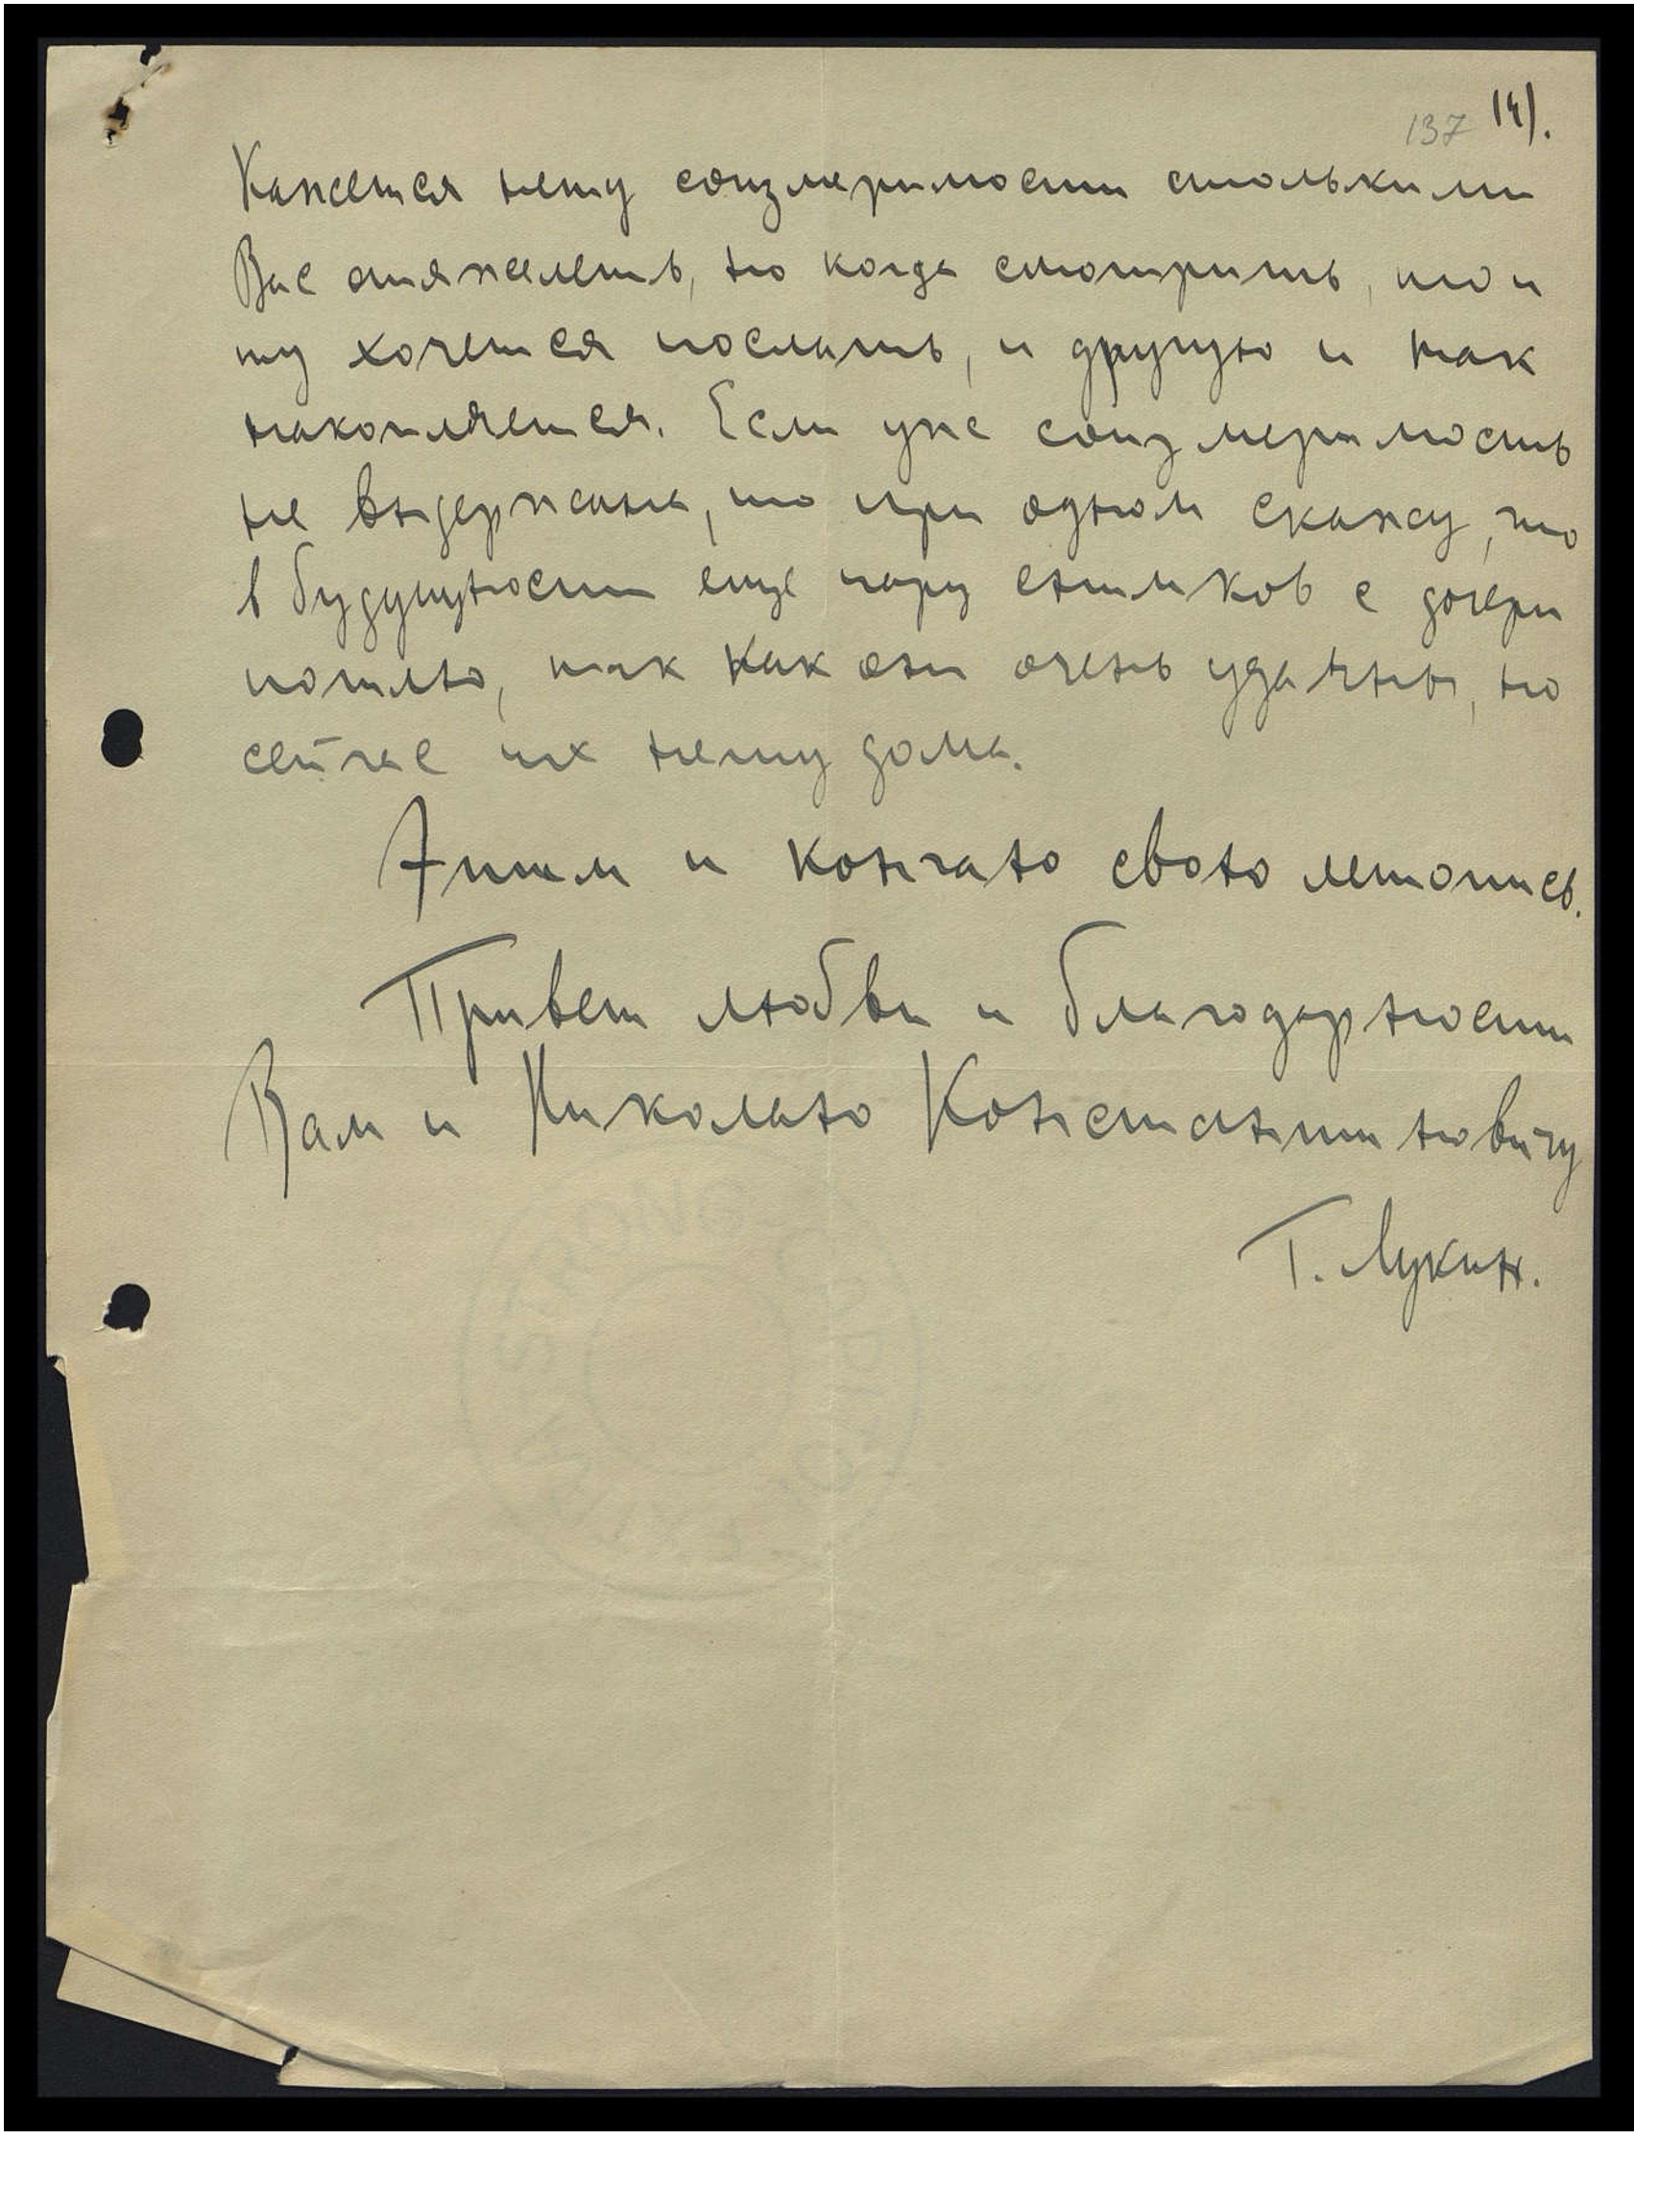 137 14).
Кажется нету соизмеримости столькими
Вас отяжелеть, но когда смотришь, то и
ту хочется послать, и другую и так
накопляется. Если уже соизмеримость
не выдержана, то при одном скажу, что
в будущности еще пару снимков с дочери
пошлю, так как они очень удачны, но
сейчас их нету дома.
Этим и кончаю свою летопись.
Привет любви и благодарности
Вам и Николаю Константиновичу
Г. Лукин.